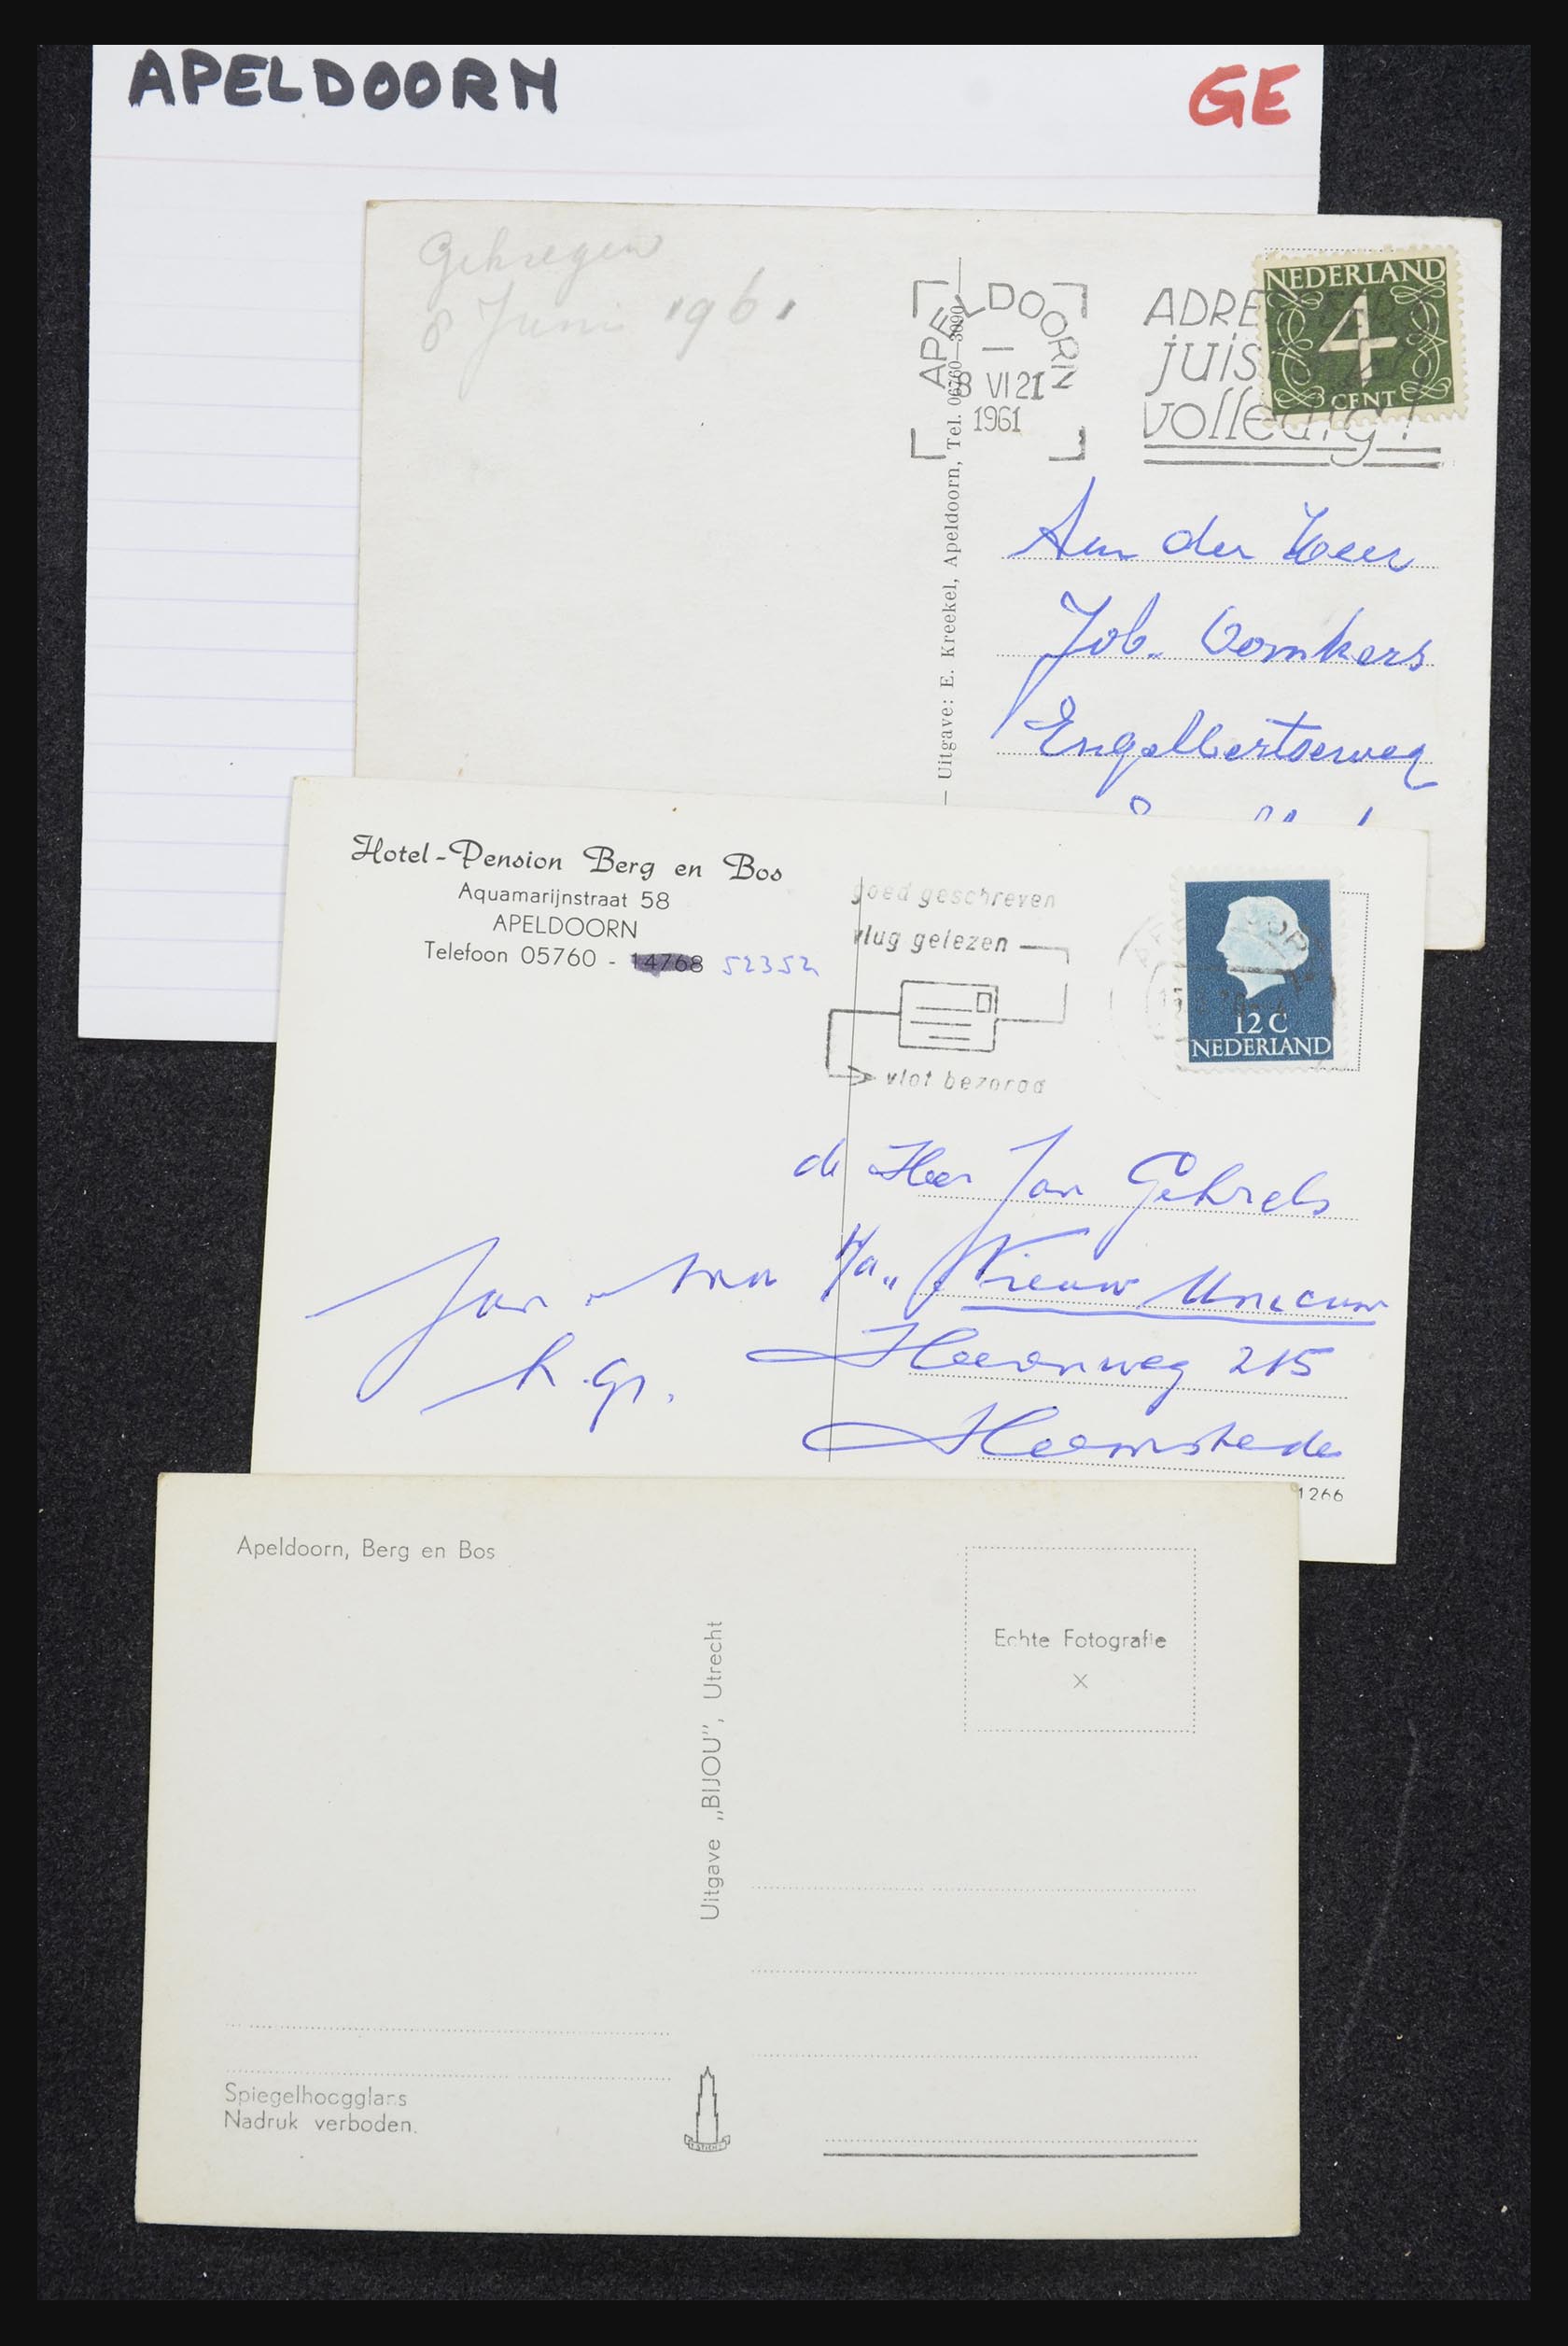 APELDOORN
GE
Gekregen
8 Juni 1961
APELDOORN
8 VI 21
1961
ADRE
juis
volledig!
NEDERLAND
4
CENT
Uitgave: E. Kreekel, Apeldoorn, Tel. 06760—3090
Aan den Heer
Job. Oomkers
Engelbertserweg
Hotel-Pension Berg en Bos
Aquamarijnstraat 58
APELDOORN
Telefoon 05760 - 14768 52352
goed geschreven
vlug gelezen
vlot bezorgd
12 C
NEDERLAND
de Heer Jan Gehrels
p/a „Nieuw Unicum
Heerenweg 215
Heemstede
h. gr.
1266
Apeldoorn, Berg en Bos
Echte Fotografie
X
Uitgave „BIJOU”, Utrecht
Spiegelhoogglans
Nadruk verboden.